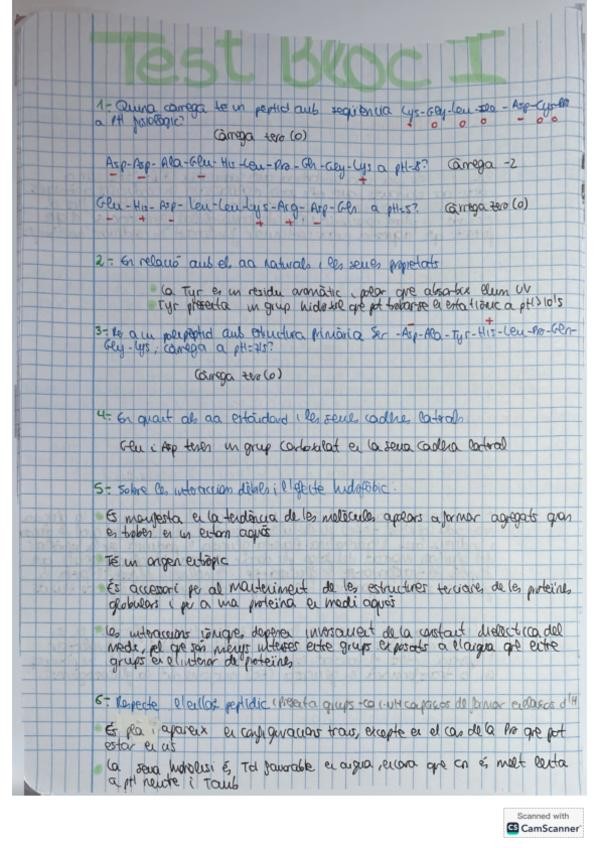 Test Bloc I
1- Quina càrrega té un pèptid amb seqüència Lys-Gly-Leu-Ser-Asp-Cys-
a pH fisiològic?
Càrrega zero (0)
Asp-Asp-Ala-Glu-His-Leu-Pro-Gln-Gly-Lys a pH=8? Càrrega -2
Glu-His-Asp-Leu-Leu-Lys-Arg-Asp-Gln a pH=5? Càrrega zero (0)
2- En relació amb el aa naturals i les seues propietats
La Tyr és un residu aromàtic, polar que absorbix llum UV
Tyr presenta un grup hidoxil que pot trobarse en estat iònic a pH>10'5
3- Per a un polipèptid amb estructura primària Ser-Asp-Ala-Tyr-His-Leu-Pro-Gln-
Gly-Lys, càrrega a pH=7'5?
Càrrega zero (0)
4- En quant als aa estàndard i les seues cadenes laterals
Glu i Asp tenen un grup carboxilat en la seua cadena lateral
5- Sobre les interaccions dèbils i l'efecte hidrofòbic.
Es manifesta en la tendència de les molècules apolars a formar agregats quan
es troben en un entorn aquós
Té un origen entròpic
És accessori per al manteniment de les estructures terciàries de les proteïnes
globulars i per a una proteïna en medi aquós
Les interaccions iòniques depenen inversament de la constant dielèctrica del
medi, pel que són menys intenses entre grups exposats a l'aigua que entre
grups en el interior de proteïnes
6- Respecte el enllaç peptídic (presenta grups -CO i -NH capaços de formar enllaços d'H
És pla i apareix en configuracions trans, excepte en el cas de la Pro que pot
estar en cis
La seua hidròlisi és Td favorable en aigua, encara que és molt lenta
a pH neutre i Tamb
Scanned with
CS CamScanner